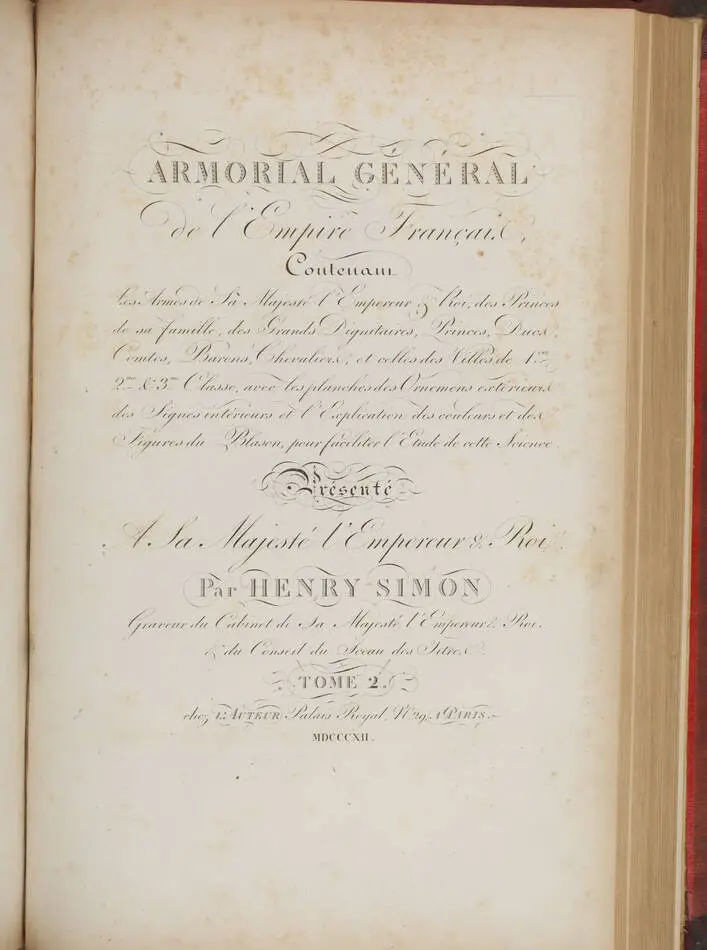 ARMORIAL GÉNÉRAL
de l'Empire Français,
Contenant
Les Armes de Sa Majesté l'Empereur & Roi, des Princes
de sa famille, des Grands Dignitaires, Princes, Ducs,
Comtes, Barons, Chevaliers, et celles des Villes de 1ere
2me & 3me Classe, avec les planches des Ornemens extérieurs
des Signes intérieurs et l'Explication des couleurs et des
Figures du Blason, pour faciliter l'Etude de cette Science.
Présenté
A Sa Majesté l'Empereur & Roi.
Par HENRY SIMON
Graveur du Cabinet de Sa Majesté l'Empereur & Roi,
& du Conseil du Sceau des Titres.
TOME 2.
chez L'AUTEUR Palais Royal, N° 29, A PARIS.
MDCCCXII.